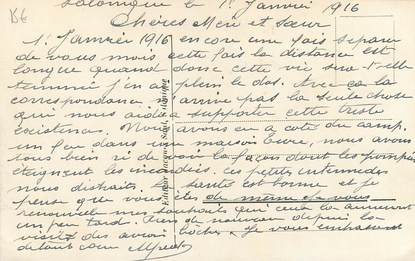 Salonique le 1. Janvier 1916
Chères Mem et Sœur
1. Janvier 1916 encore une fois séparé
de vous mais cette fois la distance est
longue quand donc cette vie sera t'elle
terminé j'en ai plein le dos. Avec ça la
correspondance n'arrive pas la seule chose
qui nous aide a supporter cette triste
existence. Nous avons eu a coté du camp
un feu dans une maison, nous avons
tous bien ri de voir la façon dont les pompiers
éteignent les incendies. ces petits intermèdes
nous distraits. La santé est bonne et je
pense que vous êtes de même je vous
renouvelle mes souhaits qui cela arriveront
un peu tard. Rien de nouveau depuis la
visite des avions boches. Je vous embrasse
de tout cœur
Edition
BE